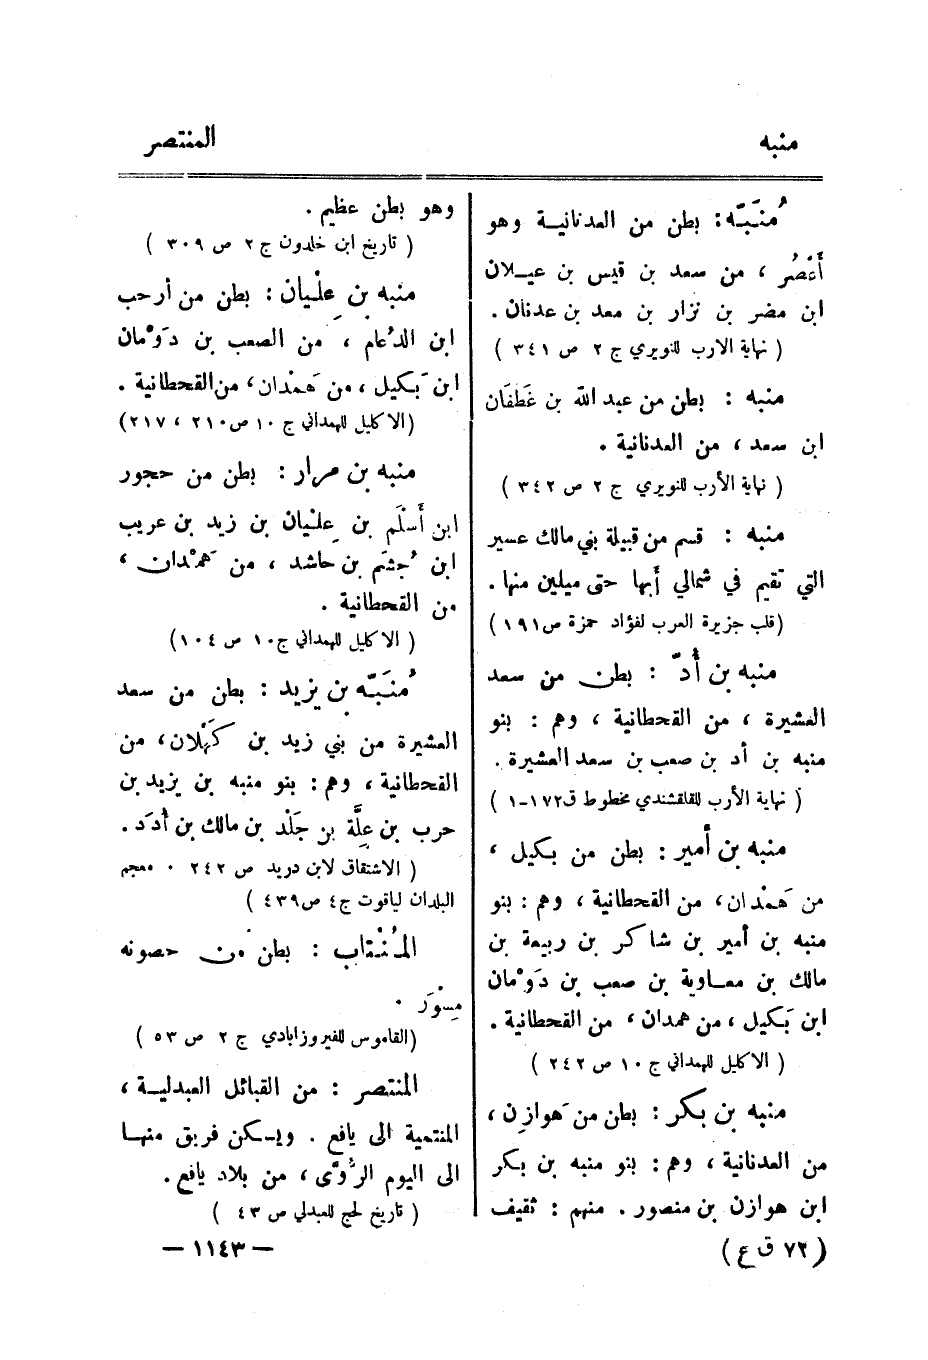 منبه
المنتصر
مُنَبّه: بطن من العدنانية وهو
أَعْصُر ، من سعد بن قيس بن عيلان
ابن مضر بن نزار بن معد بن عدنان .
( نهاية الارب للنويري ج ٢ ص ٣٤١ )
منبه : بطن من عبد الله بن غَطَفَان
ابن سعد ، من العدنانية .
( نهاية الأرب للنويري ج ٢ ص ٣٤٢ )
منبه : قسم من قبيلة بني مالك عسير
التي تقيم في شمالي أبها حتى ميلين منها .
(قلب جزيرة العرب لفؤاد حمزة ص١٩١ )
منبه بن أُدّ : بطن من سعد
العشيرة ، من القحطانية ، وهم : بنو
منبه بن أد بن صعب بن سعد العشيرة .
( نهاية الأرب للقلقشندي مخطوط ق١٧٢-١ )
منبه بن أمير : بطن من بكيل ،
من هَمْدان ، من القحطانية ، وهم : بنو
منبه بن أمير بن شاكر بن ربيعة بن
مالك بن معاوية بن صعب بن دَوْمان
ابن بَكيل ، من همدان ، من القحطانية .
( الاكليل للهمداني ج ١٠ ص ٢٤٢ )
منبه بن بكر : بطن من هَوازِن ،
من العدنانية ، وهم : بنو منبه بن بكر
ابن هوازن بن منصور . منهم : ثقيف
وهو بطن عظيم .
( تاريخ ابن خلدون ج ٢ ص ٣٠٩ )
منبه بن عِلْيان : بطن من أرحب
ابن الدُعام ، من الصعب بن دَوْمان
ابن بَكيل ، من هَمْدان ، من القحطانية .
(الاكليل للهمداني ج ١٠ ص ٢١٠ ، ٢١٧)
منبه بن مرار : بطن من حجور
ابن أَسْلَم بن عِلْيان بن زيد بن عريب
ابن جُشَم بن حاشد ، من هَمْدان ،
من القحطانية .
( الاكليل للهمداني ج١٠ ص ١٠٤)
مُنَبّه بن يزيد : بطن من سعد
العشيرة من بني زيد بن كَهْلان ، من
القحطانية ، وهم : بنو منبه بن يزيد بن
حرب بن عِلَّة بن جَلْد بن مالك بن أُدَد .
( الاشتقاق لابن دريد ص ٢٤٢ . معجم
البلدان لياقوت ج٤ ص ٤٣٩ )
المُنْتاب : بطن من حصونه
مِسْوَر .
(القاموس للفيروزابادي ج ٢ ص ٥٣ )
المنتصر : من القبائل العبدلية ،
المنتمية الى يافع . ويسكن فريق منها
الى اليوم الرُّوَّى ، من بلاد يافع .
( تاريخ لحج للعبدلي ص ٤٣ )
( ٧٢ ق ع )
— ١١٤٣ —